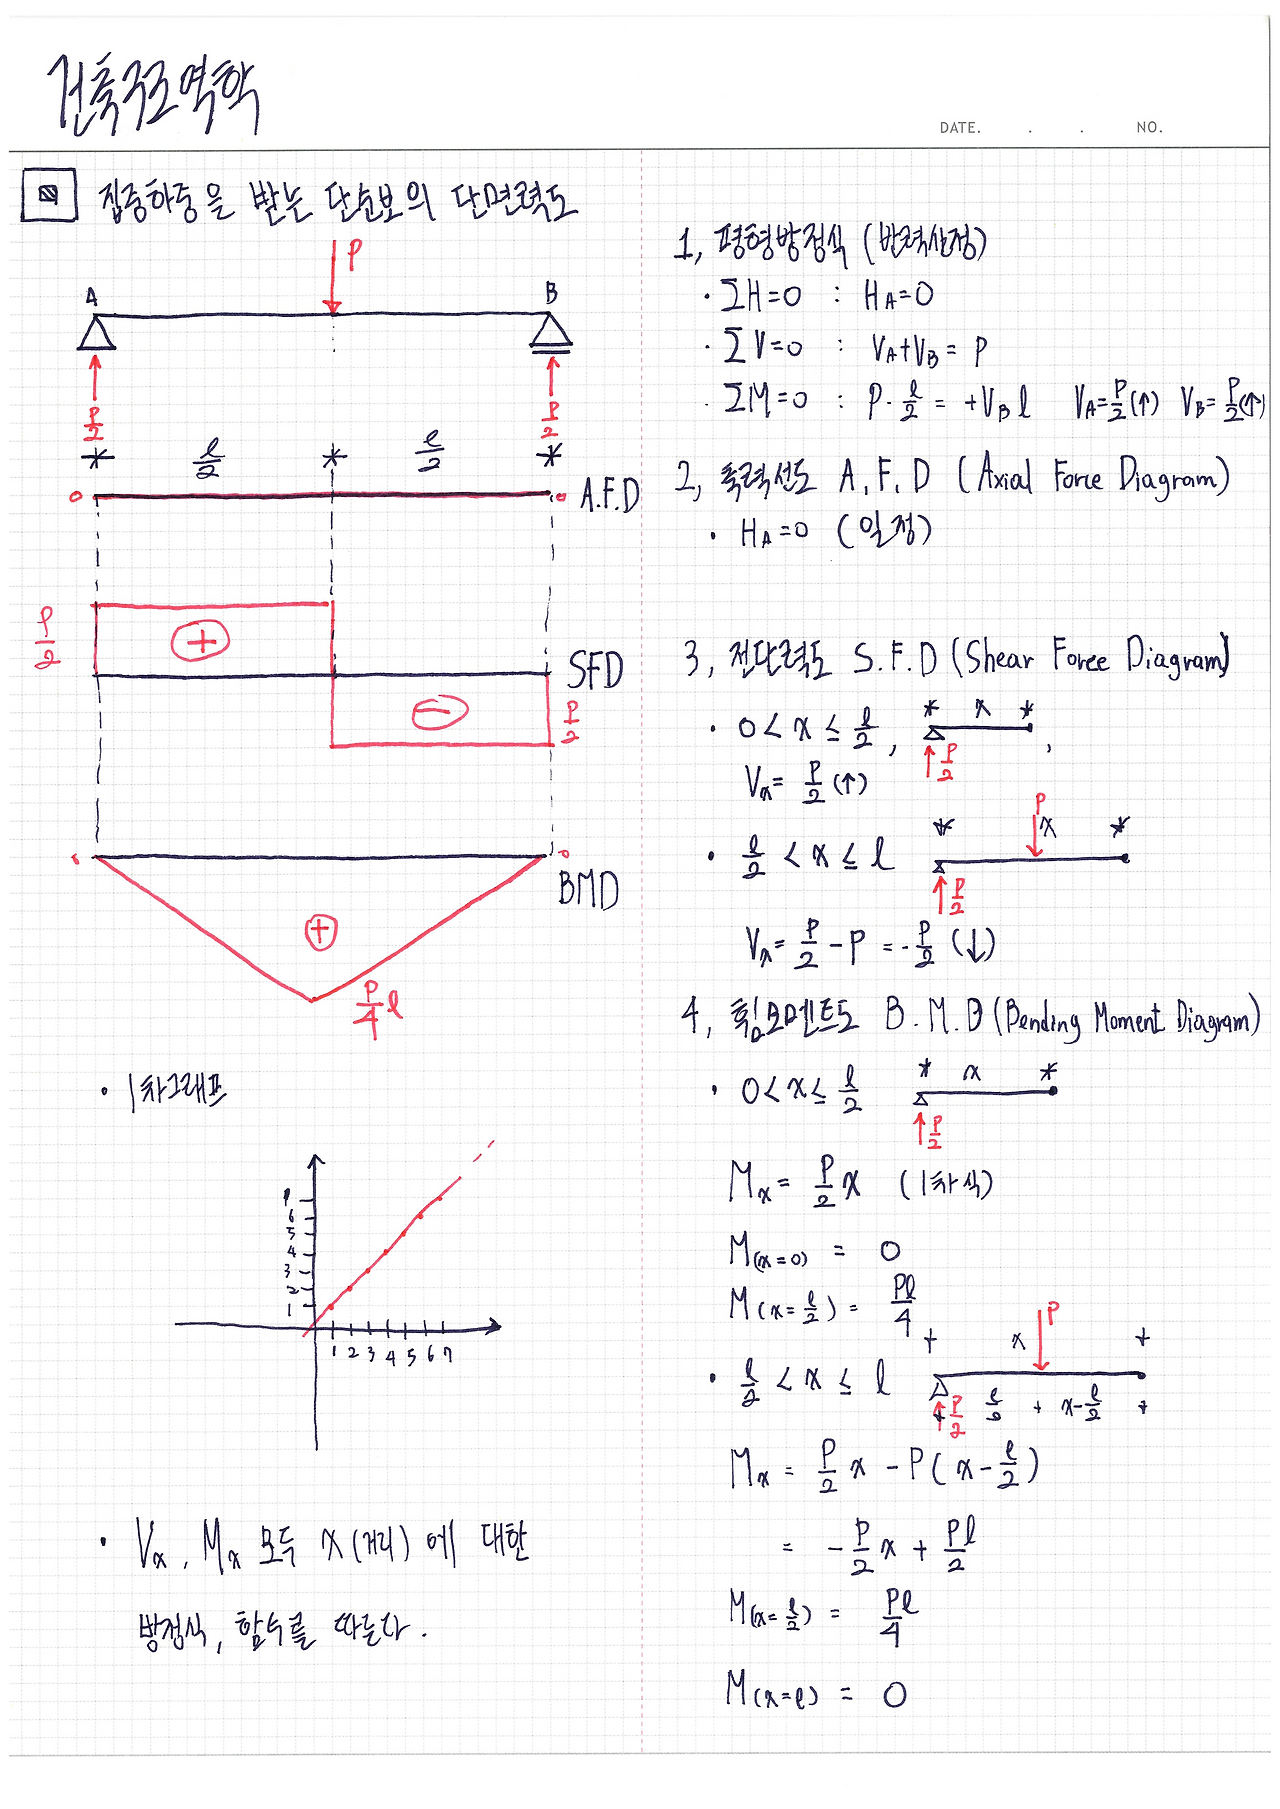 건축구조역학
DATE. . . NO.
집중하중을 받는 단순보의 단면력도
P
A B
P/2 P/2
l/2 l/2
0 0 A.F.D
P/2 + SFD
− P/2
0 0
BMD
+
P/4 l
· 1차그래프
7
6
5
4
3
2
1
1 2 3 4 5 6 7
· Vx, Mx 모두 x(거리)에 대한
방정식, 함수를 따른다.
1, 평형방정식 (반력산정)
· ΣH=0 : HA=0
· ΣV=0 : VA+VB = P
· ΣM=0 : P·l/2 = +VB l VA=P/2(↑) VB=P/2(↑)
2, 축력선도 A.F.D (Axial Force Diagram)
· HA=0 (일정)
3, 전단력도 S.F.D (Shear Force Diagram)
· 0 < x ≤ l/2, x ,
P/2
Vx= P/2 (↑)
P
x
· l/2 < x ≤ l
P/2
Vx= P/2 − P = -P/2 (↓)
4, 휨모멘트도 B.M.D (Bending Moment Diagram)
· 0 < x ≤ l/2 x
P/2
Mx = P/2 x (1차식)
M(x=0) = 0
M(x=l/2) = Pl/4
P
x
· l/2 < x ≤ l
P/2 l/2 x-l/2
Mx = P/2 x − P(x−l/2)
= −P/2 x + Pl/2
M(x=l/2) = Pl/4
M(x=l) = 0